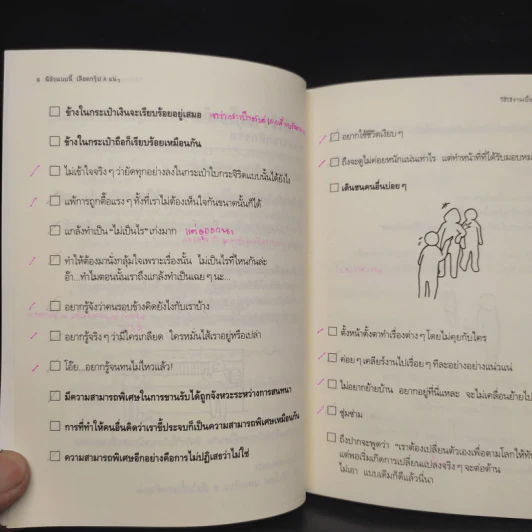 8 นิสัยแบบนี้ เลือดกรุ๊ป A แน่ๆ
ข้างในกระเป๋าเงินจะเรียบร้อยอยู่เสมอ
ข้างในกระเป๋าถือก็เรียบร้อยเหมือนกัน
ไม่เข้าใจจริงๆ ว่ายัดทุกอย่างลงในกระเป๋าใบกระจิริดแบบนั้นได้ยังไง
แพ้การถูกตื๊อแรงๆ ทั้งที่เราไม่ต้องเห็นใจกันขนาดนั้นก็ได้
แกล้งทำเป็น "ไม่เป็นไร" เก่งมาก
ทำให้ต้องมานั่งกลุ้มใจเพราะเรื่องนั้น ไม่เป็นไรที่ไหนกันล่ะ
อ๊า...ทำไมตอนนั้นเราถึงแกล้งทำเป็นเฉยๆ นะ...
อยากรู้จังว่าคนรอบข้างคิดยังไงกับเราบ้าง
อยากรู้จริงๆ ว่ามีใครเกลียด ใครหมั่นไส้เราอยู่หรือเปล่า
โอ๊ย...อยากรู้จนทนไม่ไหวแล้ว!
มีความสามารถพิเศษในการขานรับได้ถูกจังหวะระหว่างการสนทนา
การที่ทำให้คนอื่นคิดว่าเราขี้ประจบก็เป็นความสามารถพิเศษเหมือนกัน
ความสามารถพิเศษอีกอย่างคือการไม่ปฏิเสธว่าไม่ใช่
อยากใช้ชีวิตเงียบๆ
ถึงจะดูไม่ค่อยหนักแน่นเท่าไร แต่ทำหน้าที่ที่ได้รับมอบหม
เดินชนคนอื่นบ่อยๆ
ตั้งหน้าตั้งตาทำเรื่องต่างๆ โดยไม่คุยกับใคร
ค่อยๆ เคลียร์งานไปเรื่อยๆ ทีละอย่างอย่างแน่วแน่
ไม่อยากย้ายบ้าน อยากอยู่ที่นี่แหละ จะไม่เคลื่อนย้ายไป
ซุ่มซ่าม
ถึงปากจะพูดว่า "เราต้องเปลี่ยนตัวเองเพื่อตามโลกให้ทัน
แต่พอเริ่มเกิดการเปลี่ยนแปลงจริงๆ จะต่อต้าน
ไม่เอา แบบเดิมก็ดีแล้วนี่นา